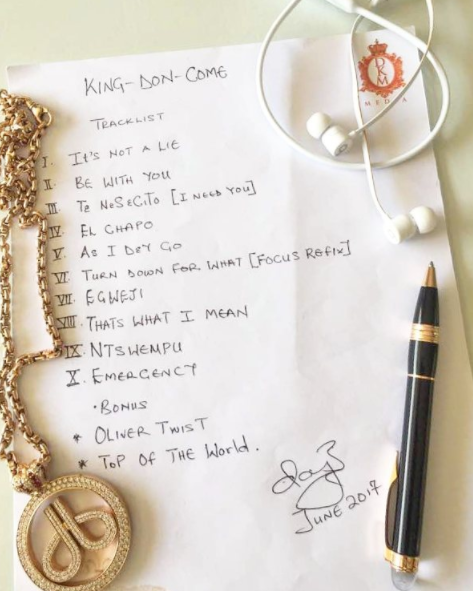 KING-DON-COME
DRM
MEDIA
TRACKLIST
I. It's NOT A LIE
II. BE WITH YOU
III. Te NeSeCiTo [I NEED YOU]
IV. EL CHAPO
V. As I Dey Go
VI. TURN DOWN FOR WHAT [FOCUS REFIX]
VII. EGWEJI
VIII. THATS WHAT I MEAN
IX. NTSWEMPU
X. EMERGENCY
• BONUS
* OLIVER TWIST
* ToP OF THE World.
JUNE 2017